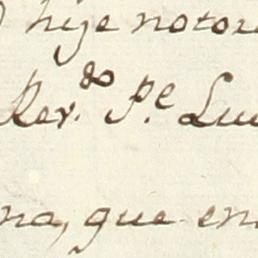 hije notori
Rev.do Pe. Lui
na, que en